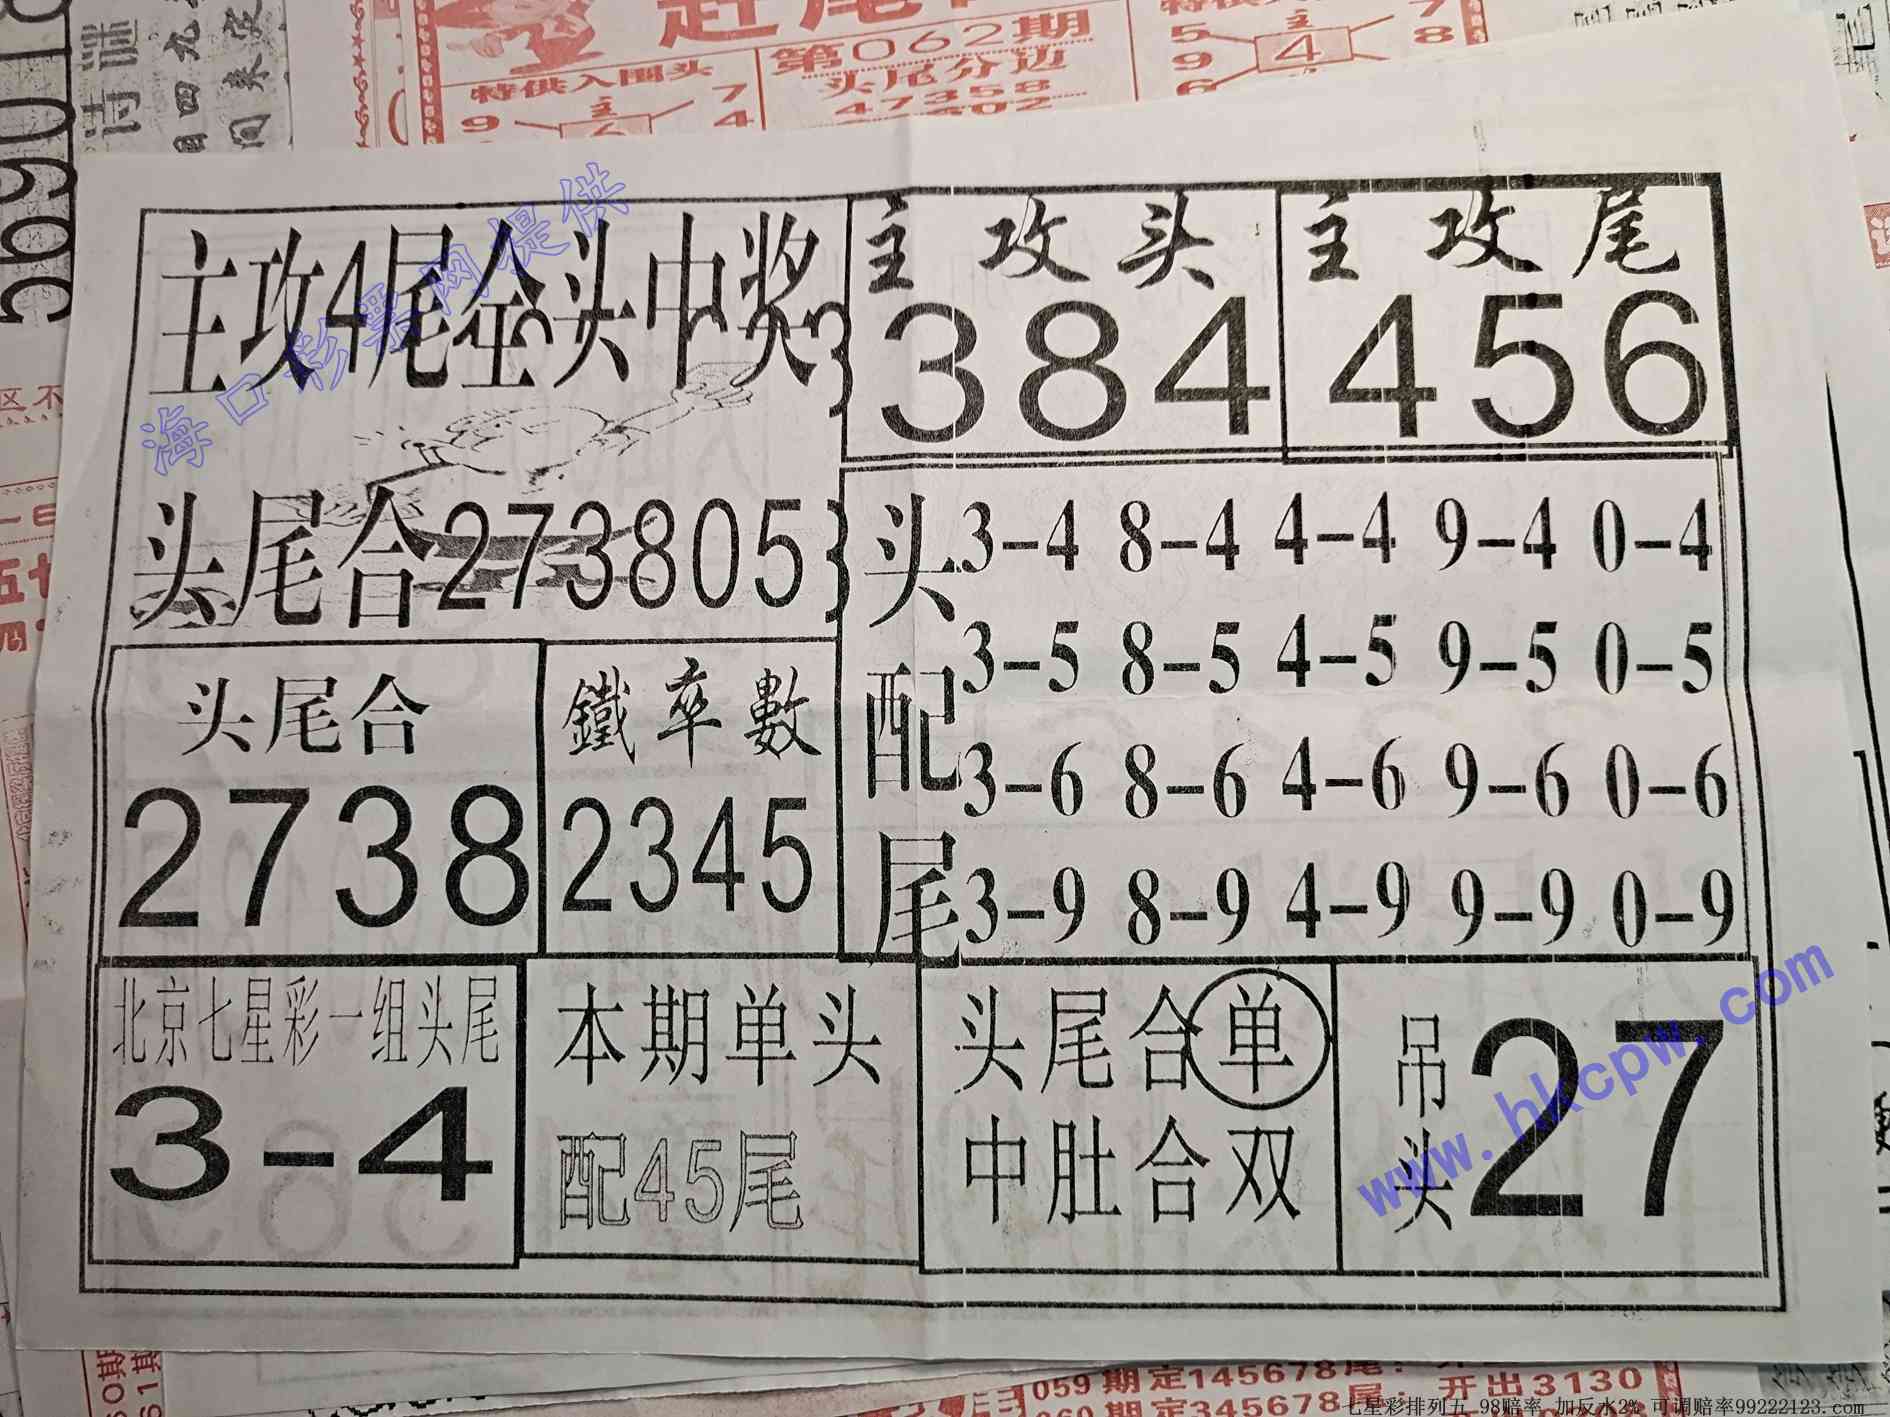 第062期
特供入围头
头尾分边
47358
主
7
9
4
5
9
6
主
4
7
8
主攻4尾全头中奖
海口彩票网提供
头尾合273805
主攻头
384
主攻尾
456
头配尾
3-4 8-4 4-4 9-4 0-4
3-5 8-5 4-5 9-5 0-5
3-6 8-6 4-6 9-6 0-6
3-9 8-9 4-9 9-9 0-9
头尾合
2738
鐵率數
2345
北京七星彩一组头尾
3-4
本期单头
配45尾
头尾合单
中肚合双
吊头
27
www.hkcpw.com
059期定145678尾:
060期定345678尾: 开出3130
七星彩排列五 98赔率 加反水2% 可调赔率99222123.com